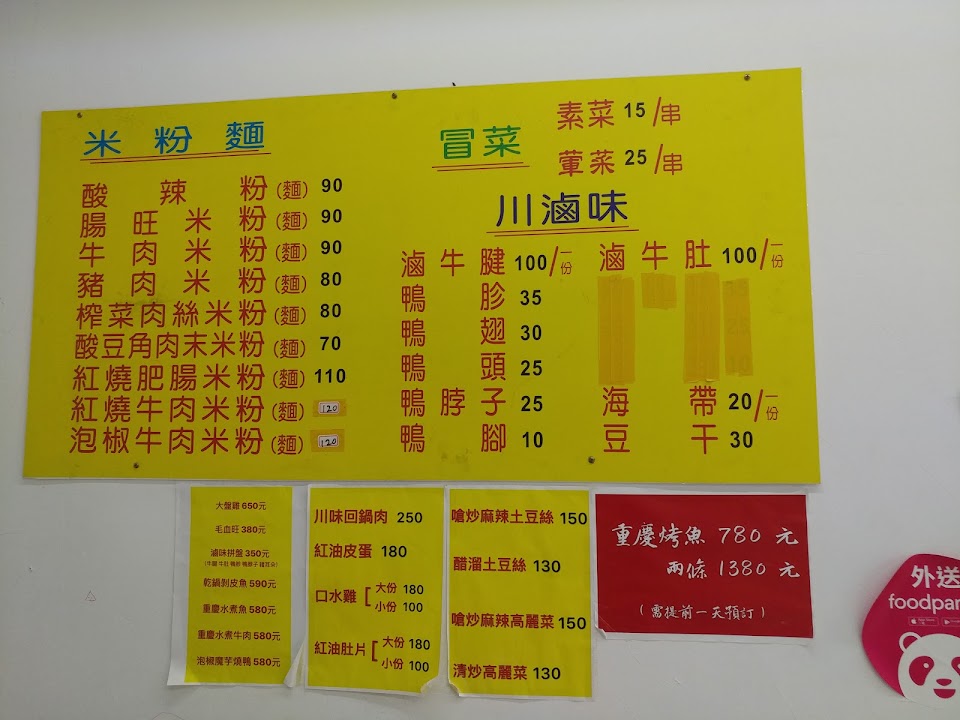 米粉麵
酸辣粉(麵) 90
腸旺米粉(麵) 90
牛肉米粉(麵) 90
豬肉米粉(麵) 80
榨菜肉絲米粉(麵) 80
酸豆角肉末米粉(麵) 70
紅燒肥腸米粉(麵) 110
紅燒牛肉米粉(麵) 120
泡椒牛肉米粉(麵) 120
冒菜
素菜 15/串
葷菜 25/串
川滷味
滷牛腱 100/一份
鴨胗 35
鴨翅 30
鴨頭 25
鴨脖子 25
鴨腳 10
滷牛肚 100/一份
海帶 20/一份
豆干 30
大盤雞 650元
毛血旺 380元
滷味拼盤 350元
乾鍋剝皮魚 590元
重慶水煮魚 580元
重慶水煮牛肉 580元
泡椒魔芋燒鴨 580元
川味回鍋肉 250
紅油皮蛋 180
口水雞 [ 大份 180
小份 100
紅油肚片 [ 大份 180
小份 100
嗆炒麻辣土豆絲 150
醋溜土豆絲 130
嗆炒麻辣高麗菜 150
清炒高麗菜 130
重慶烤魚 780 元
兩條 1380 元
(需提前一天預訂)
外送
foodpan